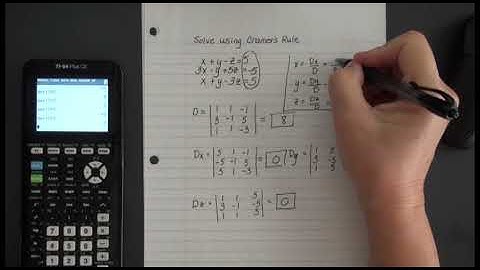 Solve using Cramer's Rule
x + y - z = 5
3x - y + 5z = -5
x + y - 3z = 5
x = Dx/D =
y = Dy/D
z = Dz/D =
D = | 1 1 -1 |
| 3 -1 5 | = 8
| 1 1 -3 |
Dx = | 5 1 -1 |
| -5 -1 5 | = 0 Dy = | 1 5
| 5 1 -3 | | 3 -5
| 1 5
Dz = | 1 1 5 |
| 3 -1 -5 | = 0
| 1 1 5 |